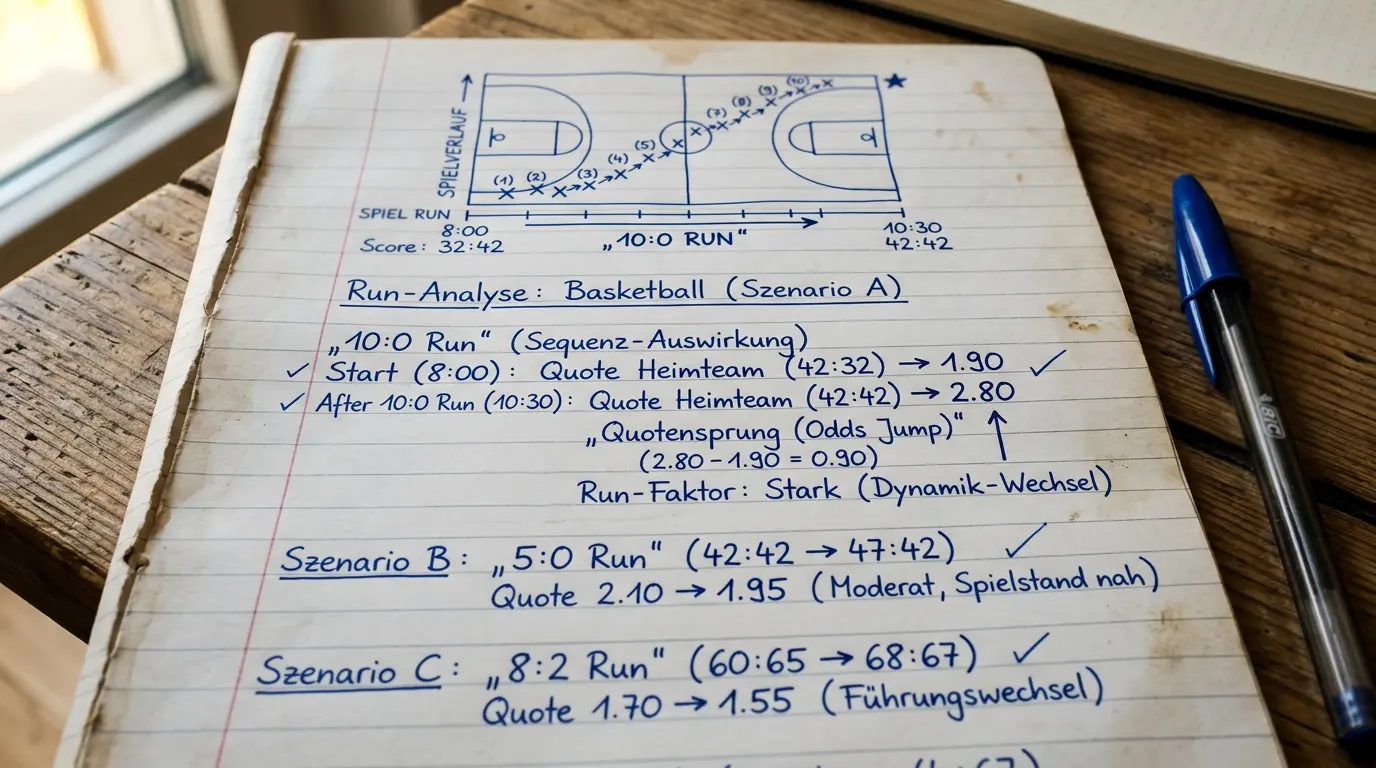 SPIELVERLAUF
(1) (2) (3) (4) (5) (7) (8) (9) (10)
SPIEL RUN
8:00 10:30
Score: 32:42 „10:0 RUN“ 42:42
Run-Analyse: Basketball (Szenario A)
„10:0 Run“ (Sequenz-Auswirkung)
✓ Start (8:00): Quote Heimteam (42:32) → 1.90 ✓
✓ After 10:0 Run (10:30): Quote Heimteam (42:42) → 2.80
„Quotensprung (Odds Jump)“ ↑
(2.80 – 1.90 = 0.90)
Run-Faktor: Stark (Dynamik-Wechsel)
Szenario B: „5:0 Run“ (42:42 → 47:42) ✓
Quote 2.10 → 1.95 (Moderat, Spielstand nah)
Szenario C: „8:2 Run“ (60:65 → 68:67) ✓
Quote 1.70 → 1.55 (Führungswechsel)
BIC